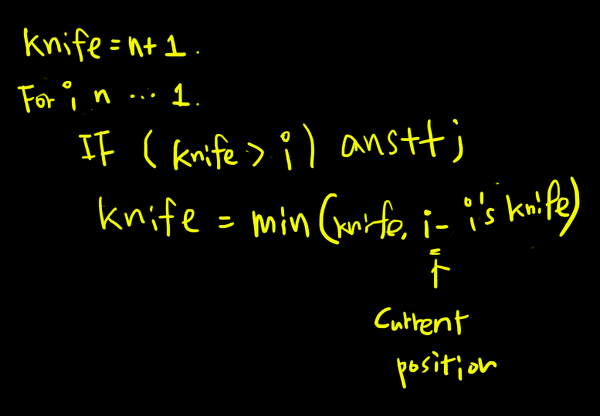 knife = n+1.
For i n ... 1.
IF ( knife > i ) ans++;
knife = min(knife, i - i's knife)
Current
position